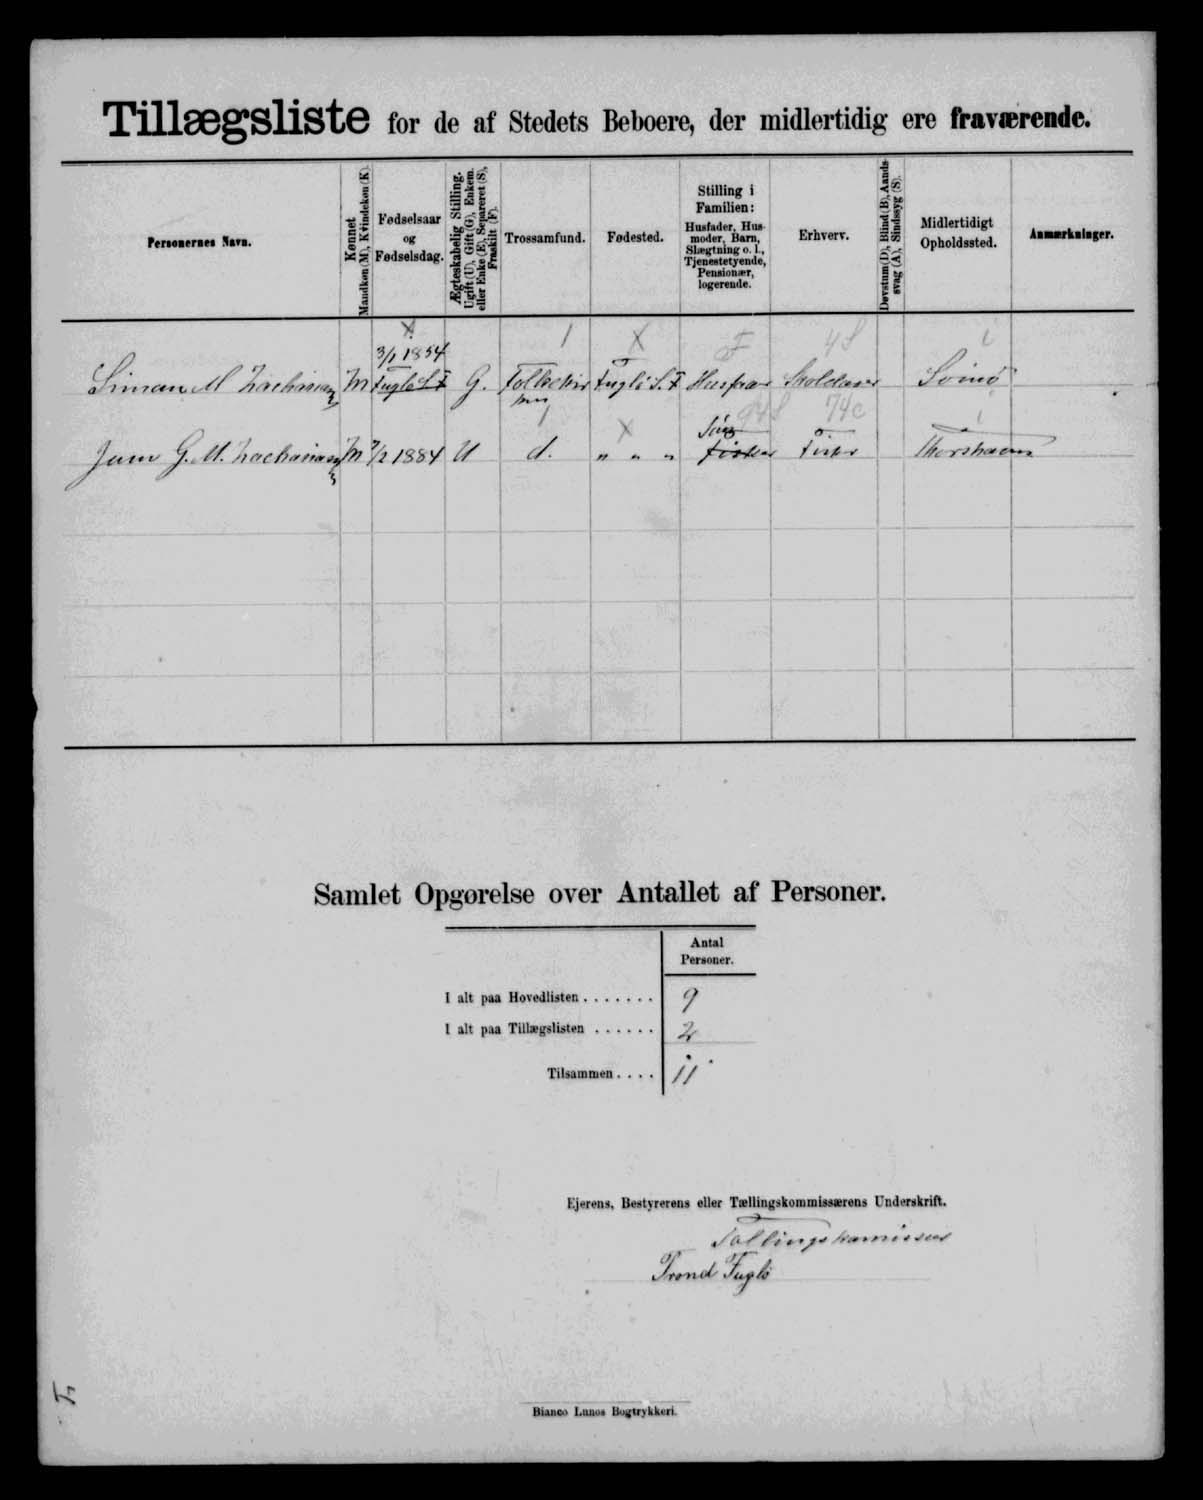 Tillægsliste for de af Stedets Beboere, der midlertidig ere fraværende.
Personernes Navn.
Kønnet
Mandkøn (M), Kvindekøn (K).
Fødselsaar
og
Fødselsdag.
Ægteskabelig Stilling.
Ugift (U), Gift (G), Enkem.
eller Enke (E), Separeret (S),
Fraskilt (F).
Trossamfund.
Fødested.
Stilling i
Familien:
Husfader, Hus-
moder, Barn,
Slægtning o. l.,
Tjenestetyende,
Pensionær,
logerende.
Erhverv.
Døvstum (D), Blind (B), Aands-
svag (A), Sindssyg (S).
Midlertidigt
Opholdssted.
Anmærkninger.
X 1 X F 48 i
3/1 1854
Simun M Zachariasen M Fuglö S.F G. Folkekir Fuglö S.F Husfader Skolelærer Svinö
ken
1 X 948 74c i
Sön
M. Zachariasen M 7/2 1884 U d. " " " Fisker Fisker Thorshavn
Samlet Opgørelse over Antallet af Personer.
Antal
Personer.
I alt paa Hovedlisten . . . . . . . 9
I alt paa Tillægslisten . . . . . . 2
Tilsammen . . . . 11
Ejerens, Bestyrerens eller Tællingskommissærens Underskrift.
Tollingskomissær
Trond Fuglö
Bianco Lunos Bogtrykkeri.